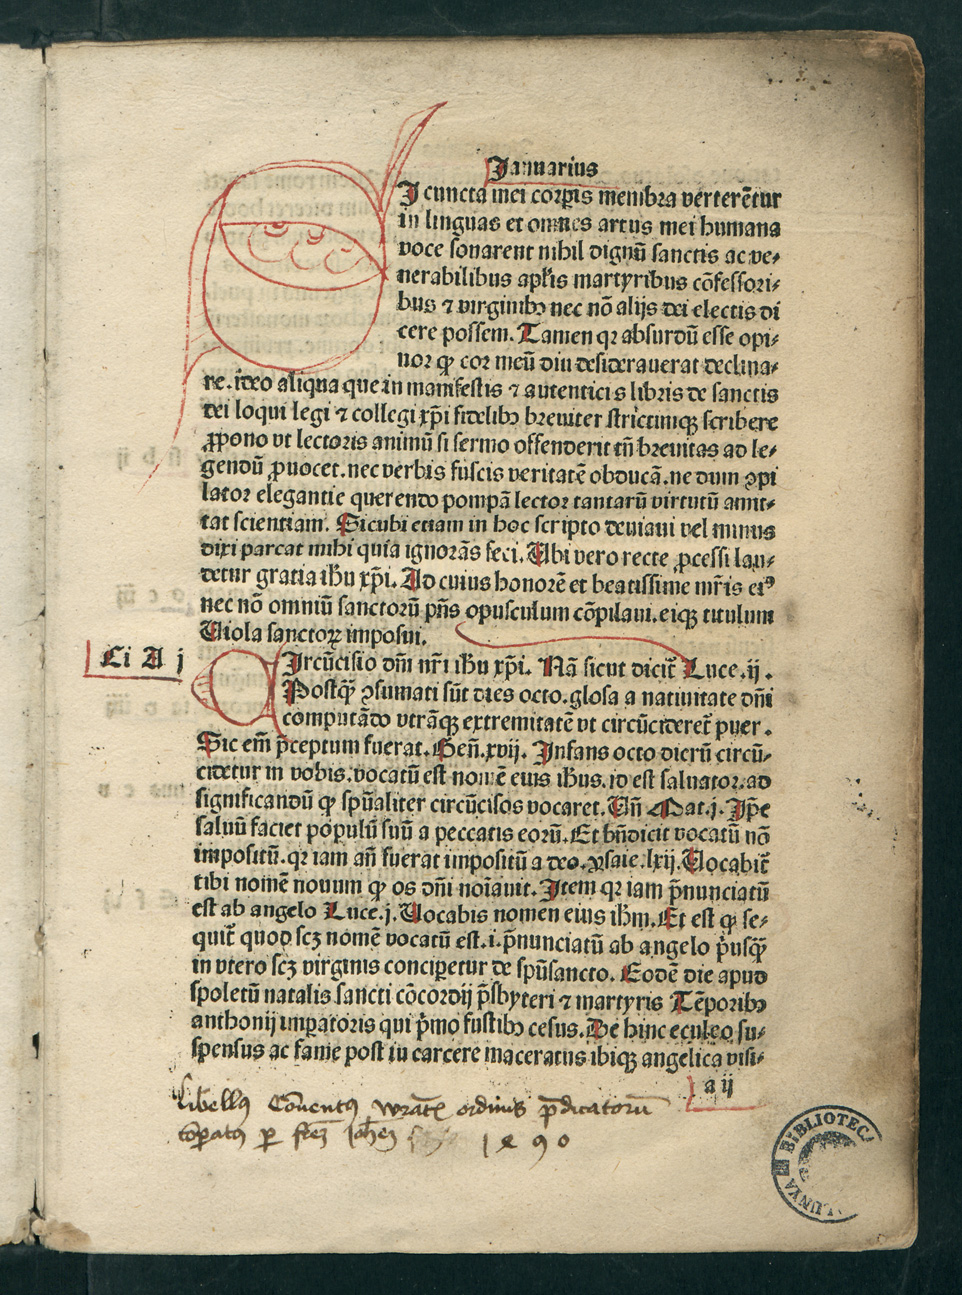 Januarius
J cuncta mei corꝑis membra verterẽtur
in linguas et omnes artus mei humana
voce sonarent nihil dignũ sanctis ac ve⸗
nerabilibus apl̃is martyribus cõfessori⸗
bus ⁊ virginibꝫ nec nõ alijs dei electis di
cere possem. Tamen qꝛ absurdũ esse opi⸗
nor ꝙ cor meũ diu desiderauerat declina⸗
re. ideo aliqua que in manifestis ⁊ autenticis libris de sanctis
dei loqui legi ⁊ collegi xp̃i fidelibꝫ breuiter strictimqꝫ scribere
ꝓpono vt lectoris animũ si sermo offenderit tñ breuitas ad le⸗
gendũ ꝓuocet. nec verbis fuscis veritatẽ obducã. ne dum ꝯpi
lator elegantie querendo pompã lector tantarũ virtutũ amit⸗
tat scientiam. Sicubi etiam in hoc scripto deuiaui vel minus
dixi parcat mihi quia ignorãs feci. Ubi vero recte ꝓcessi lau⸗
detur gratia ihũ xp̃i. Ad cuius honorẽ et beatissime mr̃is eiꝰ
nec nõ omniũ sanctorũ pñs opusculum cõpilaui. eiqꝫ titulum
Uiola sanctoꝝ imposui.
Li A j
Jrcũcisio dñi nr̃i ihũ xp̃i. Nã sicut dicit̃ Luce. ij.
Postqꝫ̃ ꝯsumati sũt dies octo. glosa a natiuitate dñi
computãdo vtrãqꝫ extremitatẽ vt circũcideret̃ puer.
Sic em̃ p̃ceptum fuerat. Geñ. xvij. Infans octo dierũ circũ⸗
cidetur in vobis. vocatũ est nomẽ eius ihũs. id est saluator. ad
significandũ ꝙ spũaliter circũcisos vocaret. Uñ Mat. j. Jp̃e
saluũ faciet populũ suũ a peccatis eorũ. Et bñ dicit vocatũ nõ
impositũ. qꝛ iam añ fuerat impositũ a deo. ysaie. lxij. Uocabit̃
tibi nomẽ nouum ꝙ os dñi noĩauit. Item qꝛ iam p̃nunciatũ
est ab angelo Luce. j. Uocabis nomen eius ihm̃. Et est ꝙ se⸗
quit̃ quod scꝫ nomẽ vocatũ est. i. p̃nunciatũ ab angelo p̃usqꝫ̃
in vtero scꝫ virginis conciꝑetur de spũsancto. Eodẽ die apud
spoletũ natalis sancti cõcordij p̃sbyteri ⁊ martyris Tẽporibꝫ
anthonij imꝑatoris qui p̃mo fustibꝫ cesus. De hinc eculeo su⸗
spensus ac fame post in carcere maceratus ibiqꝫ angelica visi⸗
a ij
libellꝰ Cõuentꝰ wratĩ ordinis p̃dicatorũ
cõꝑatꝰ ꝑ frẽm Joh̃em 1490
BIBLIOTECA